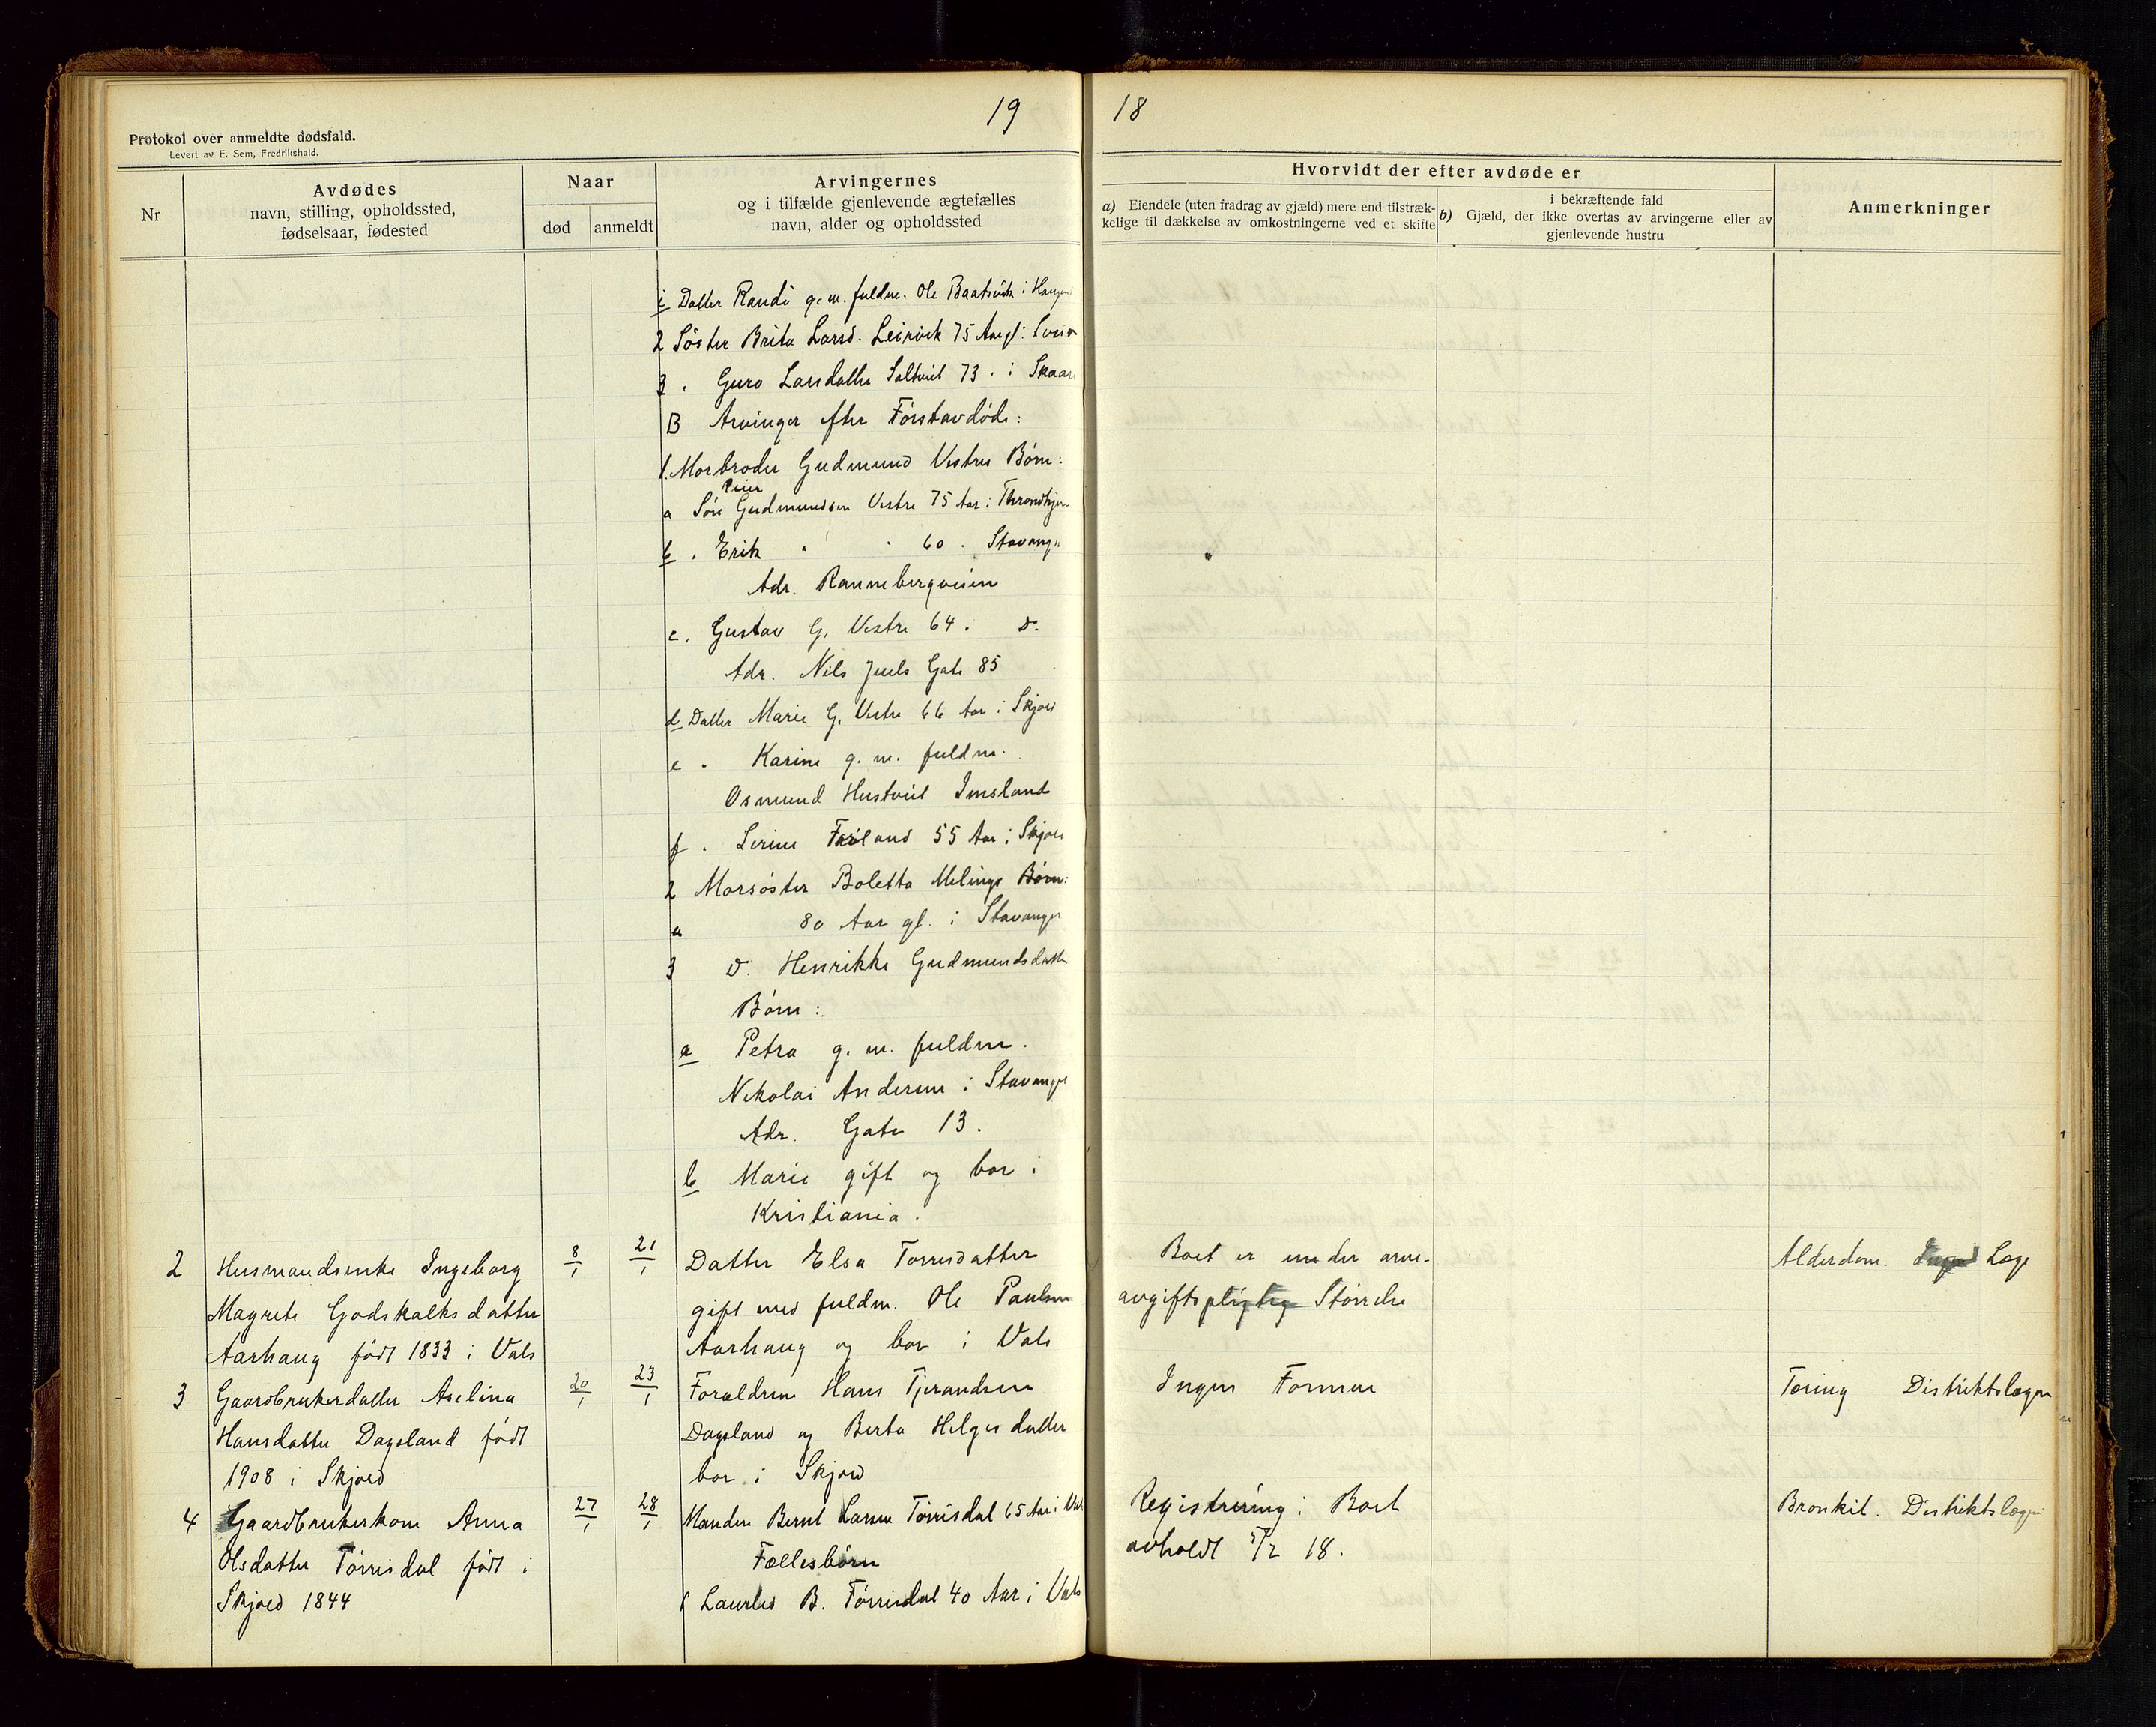 19
18
Protokol over anmeldte dødsfald.
Levert av E. Sem, Fredrikshald.
Nr
Avdødes
navn, stilling, opholdssted,
fødselsaar, fødested
Naar
død
anmeldt
Arvingernes
og i tilfælde gjenlevende ægtefælles
navn, alder og opholdssted
Hvorvidt der efter avdøde er
a) Eiendele (uten fradrag av gjæld) mere end tilstræk-
kelige til dækkelse av omkostningerne ved et skifte
i bekræftende fald
b) Gjæld, der ikke overtas av arvingerne eller av
gjenlevende hustru
Anmerkninger
i Datter Randi g. m. fuldm. Ole Baatsvik i
2 Søster Brita Larsd. Leirvik 75 Aar gl. i
3 " Guro Larsdatter Saltveit 73 " i Skaar
B Arvinger efter Førstavdøde:
1. Morbroder Gudmund Vestres Børn:
Peier
a Søn Gudmundsen Vestre 75 Aar i Throndhjem
b " Erik " " 60 " Stavanger
Adr. Ranneberqveien
c. Gustav G. Vestre 64 " Do
Adr. Nils Juels Gate 85
d Datter Marie G. Vestre 66 Aar i Skjold
e " Karine g. m. fuldm.
Osmund Hustveit Imsland
f " Serine 55 Aar i Skjold
2 Morsøster Boletta Melings Børn:
a 80 Aar gl. i Stavanger
3 D. Henrikke Gudmundsdatter
Børn:
a Petra g. m. fuldm.
Nikolai Andersen i Stavanger
Adr. Gate 13.
b Marie gift og bor i
Kristiania.
2 Husmandsenke Ingeborg 8/1 21/1 Datter Elsa Torrisdatter Boet er under arve- Alderdom. Læge
Magrete Godskalksdatter gift med fuldm. Ole Paulsen avgiftspligtig Størrelse
Aarhaug født 1833 i Vats Aarhaug og bor i Vats
3 Gaardbrukerdatter Aselina 20/1 23/1 Forældrene Hans Tjerandsen Ingen Formue Tæring Distriktslægen
Hansdatter Dagsland født Dagsland og Berta Helgesdatter
1908 i Skjold bor i Skjold
4 Gaardbrukerkone Anna 27/1 28/1 Manden Bernt Larsen Tørrisdal 65 Aar i Vats Registrering i Boet Bronkit. Distriktslægen
Olsdatter Tørrisdal født i Fællesbørn avholdt 5/2 18.
Skjold 1844 1 Laurits B. Tørrisdal 40 Aar i Vats